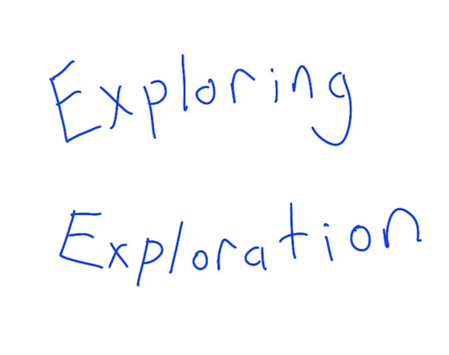 Exploring
Exploration